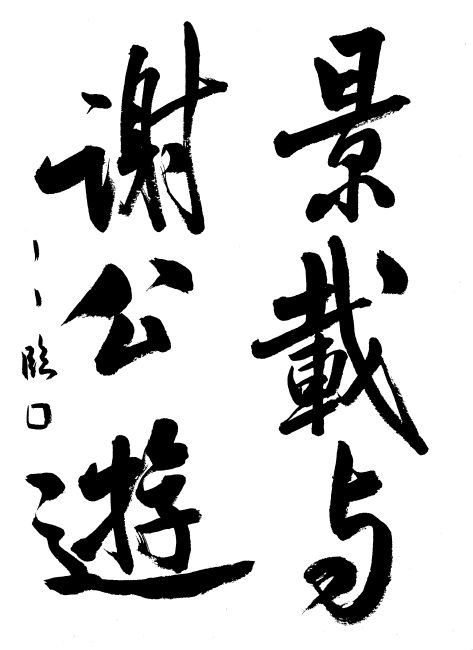 景載与
謝公遊
臨